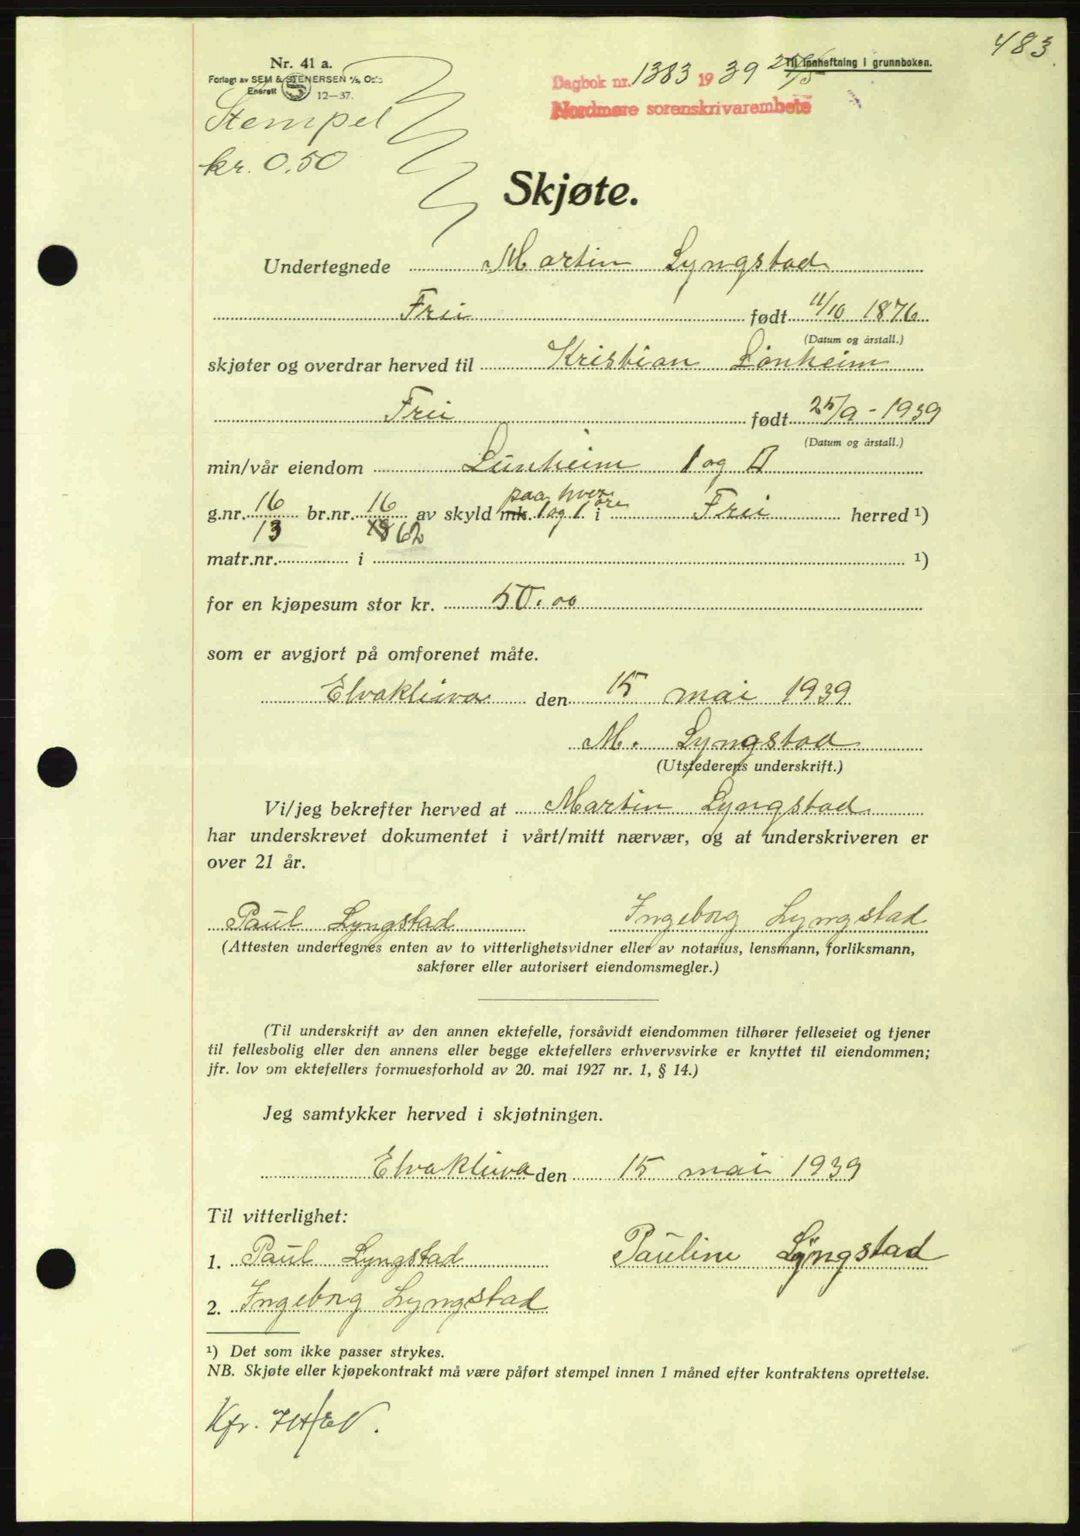 483
Nr. 41 a.
Forlagt av SEM & STENERSEN A/S, Oslo
Enerett 12—37.
Til innheftning i grunnboken.
Dagbok nr. 1383 1939 25/5
Nordmøre sorenskrivarembete
Stempel
kr. 0.50
Skjøte.
Undertegnede Martin Lyngstad
Frei født 11/10 1876
(Datum og årstall.)
skjøter og overdrar herved til Kristian Lønheim
Frei født 25/9 - 1939
(Datum og årstall.)
min/vår eiendom Lünheim I og II
paa hver
g.nr. 16 br.nr. 16 av skyld mk. 1 og 1 øre i Frei herred ¹)
13 62
matr.nr. i ¹)
for en kjøpesum stor kr. 50.00
som er avgjort på omforenet måte.
Elvakliva den 15 mai 1939
M. Lyngstad
(Utstederens underskrift.)
Vi/jeg bekrefter herved at Martin Lyngstad
har underskrevet dokumentet i vårt/mitt nærvær, og at underskriveren er
over 21 år.
Paul Lyngstad Ingeborg Lyngstad
(Attesten undertegnes enten av to vitterlighetsvidner eller av notarius, lensmann, forliksmann,
sakfører eller autorisert eiendomsmegler.)
(Til underskrift av den annen ektefelle, forsåvidt eiendommen tilhører felleseiet og tjener
til fellesbolig eller den annens eller begge ektefellers erhvervsvirke er knyttet til eiendommen;
jfr. lov om ektefellers formuesforhold av 20. mai 1927 nr. 1, § 14.)
Jeg samtykker herved i skjøtningen.
Elvakliva den 15 mai 1939
Til vitterlighet:
1. Paul Lyngstad Pauline Lyngstad
2. Ingeborg Lyngstad
¹) Det som ikke passer strykes.
NB. Skjøte eller kjøpekontrakt må være påført stempel innen 1 måned efter kontraktens oprettelse.
Kfr.